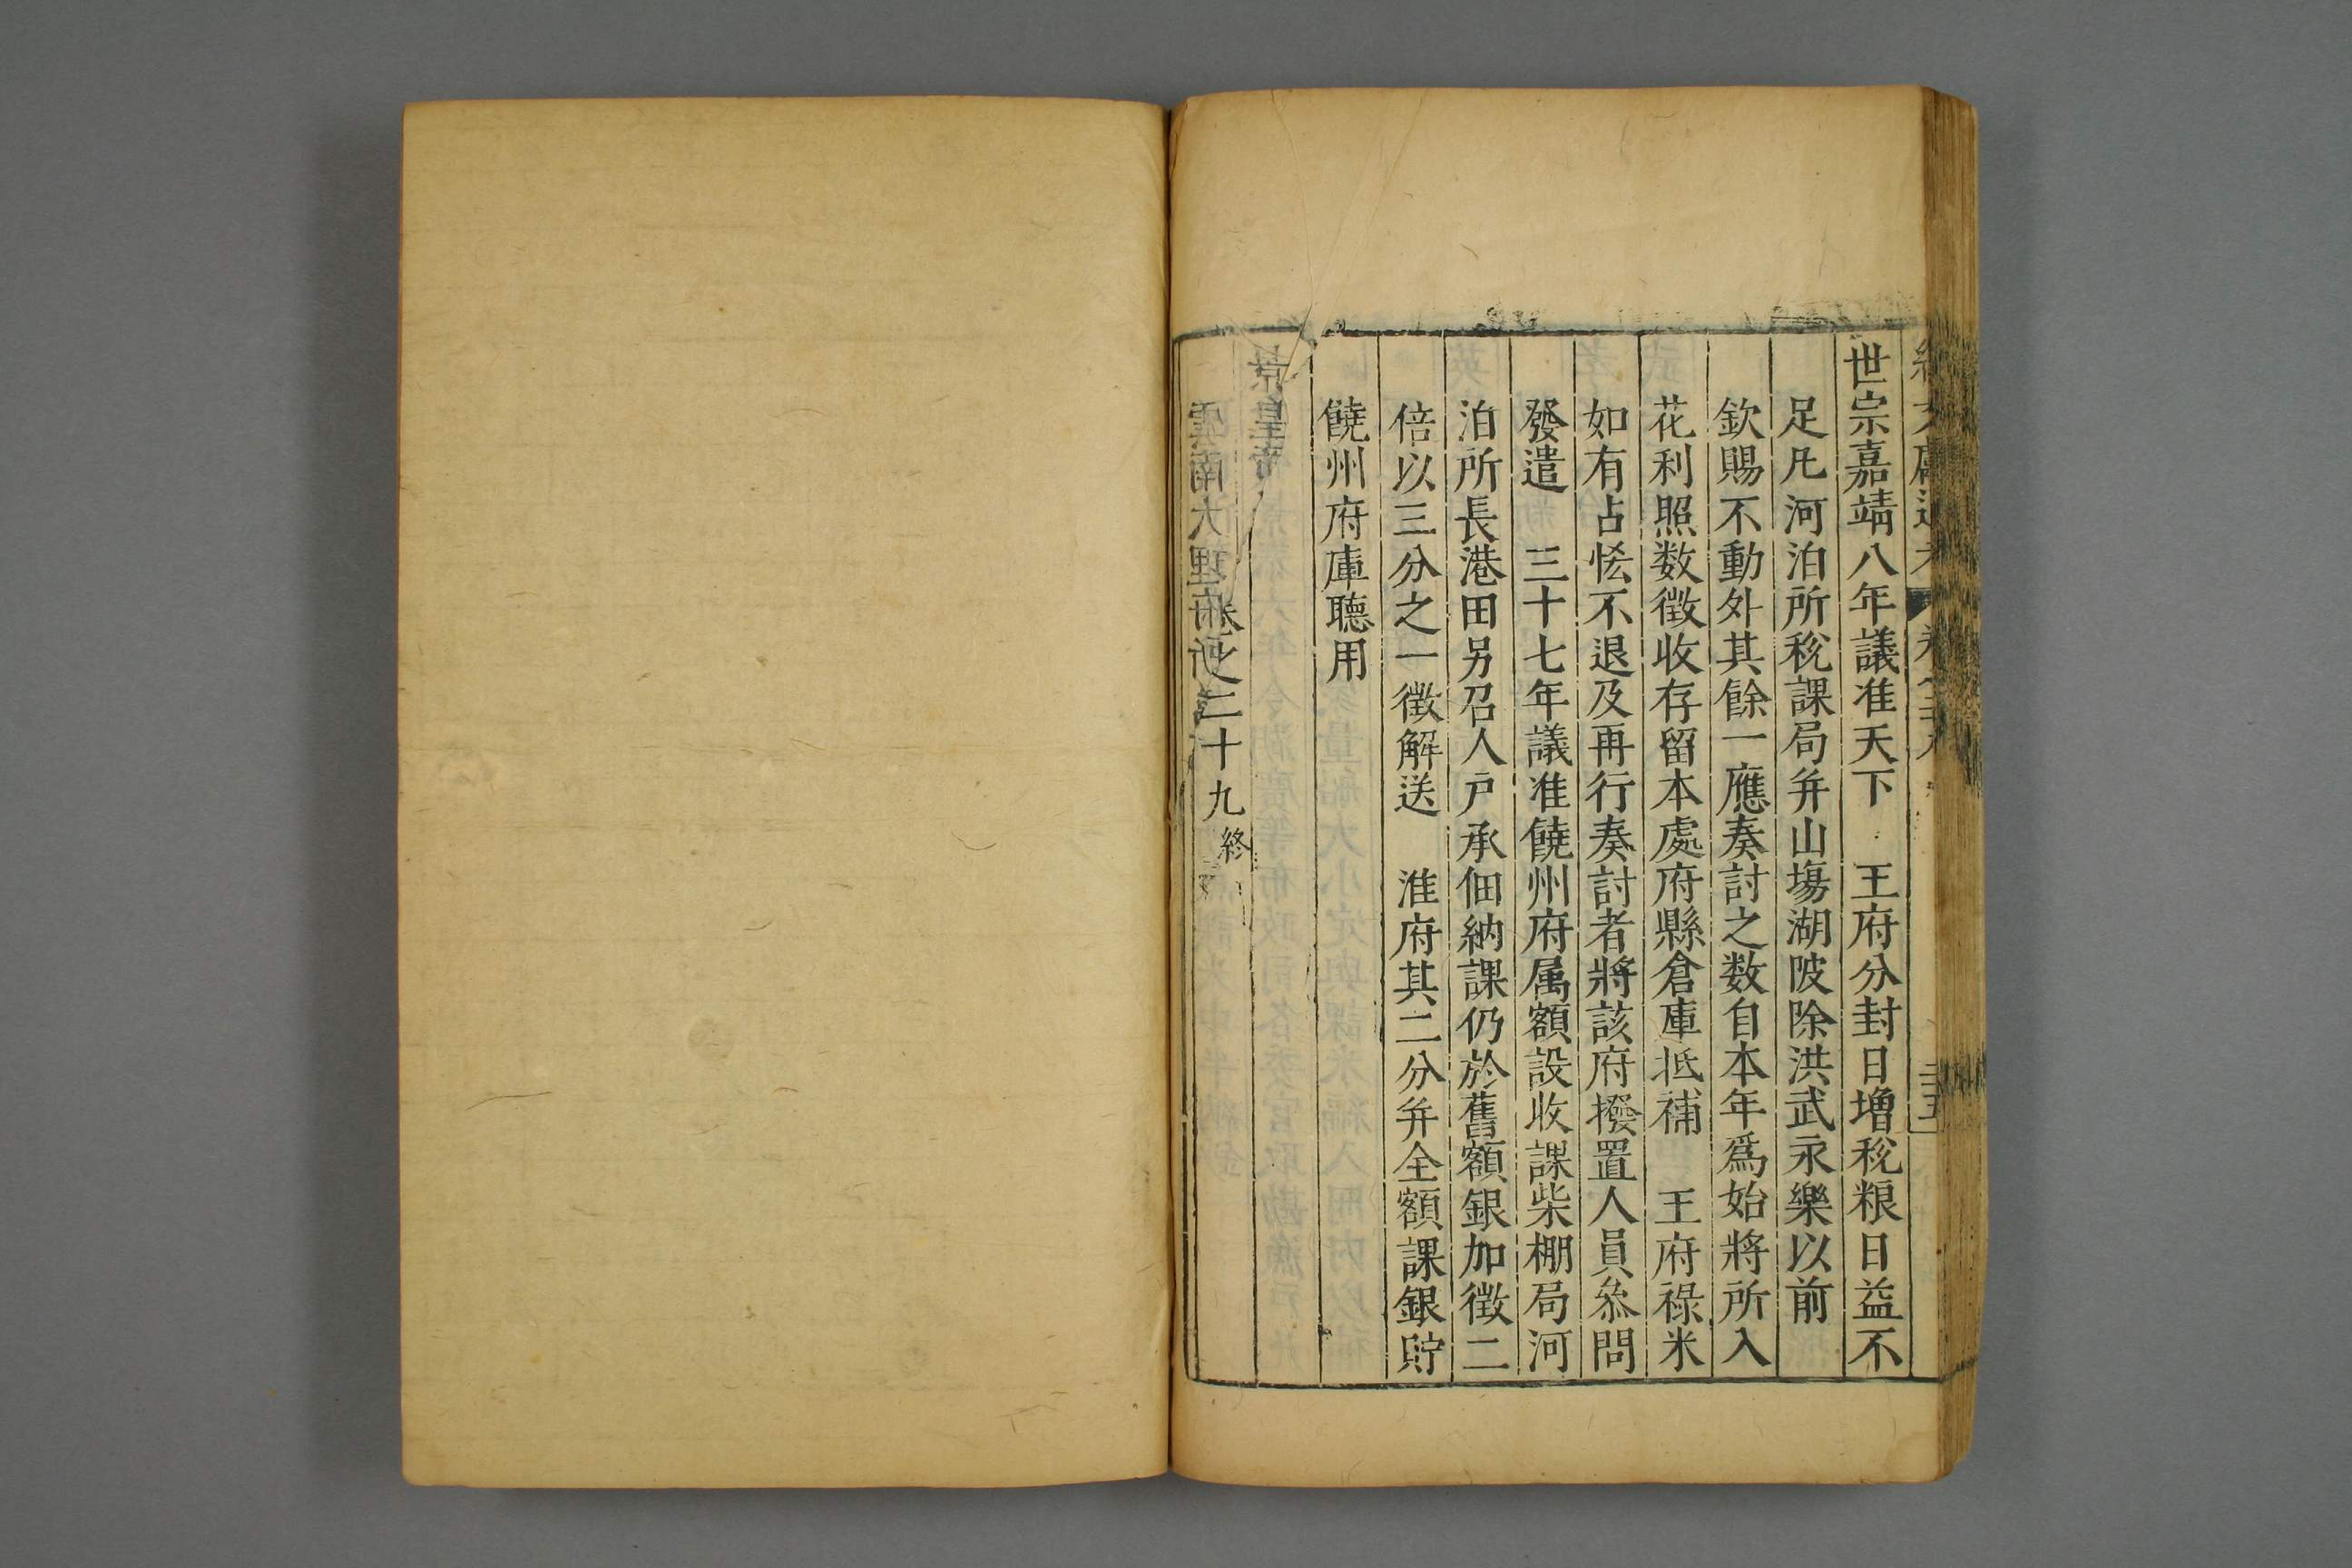 世宗嘉靖八年議准天下 王府分封日增稅粮日益不
足凡河泊所稅課局并山塲湖陂除洪武永樂以前
欽賜不動外其餘一應奏討之数自本年爲始將所入
花利照数徵收存留本處府縣倉庫抵補 王府祿米
如有占恡不退及再行奏討者將該府撥置人員叅問
發遣 三十七年議准饒州府属額設收課柴棚局河
泊所長港田另召人戶承佃納課仍於舊額銀加徵二
倍以三分之一徵解送 淮府其二分并全額課銀貯
饒州府庫聽用
卷之二十九終